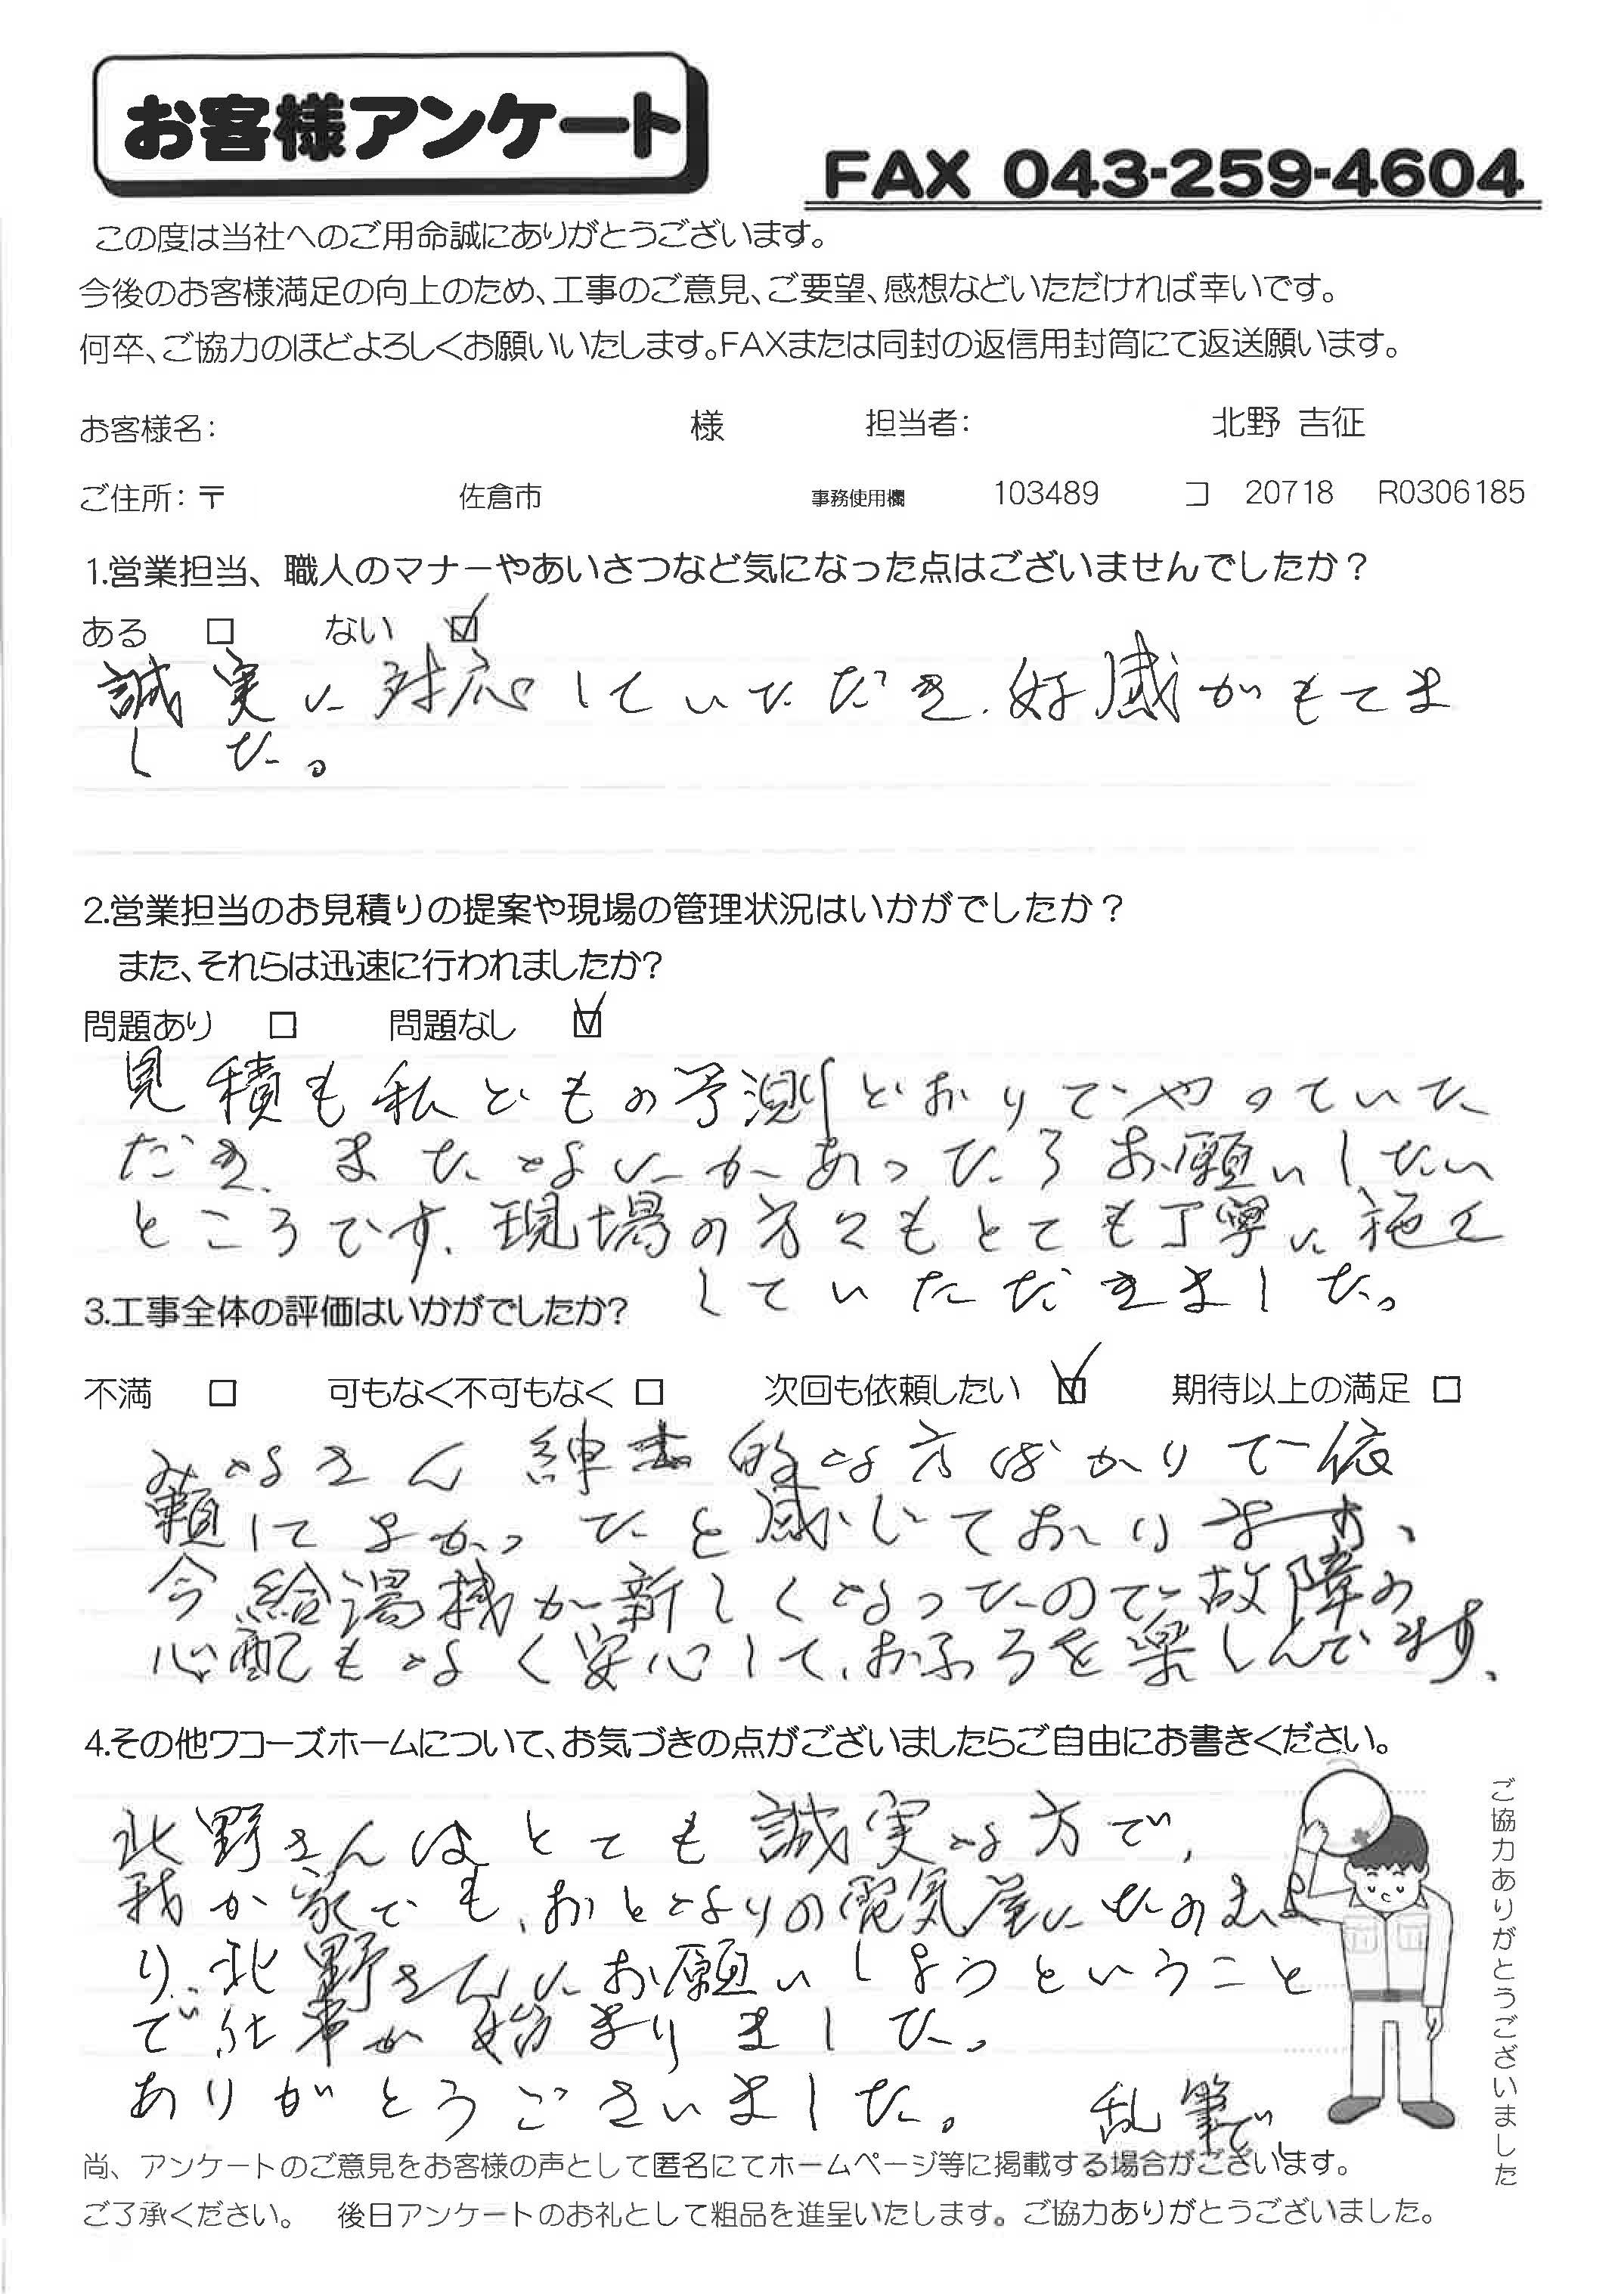 お客様アンケート
FAX 043-259-4604
この度は当社へのご用命誠にありがとうございます。
今後のお客様満足の向上のため、工事のご意見、ご要望、感想などいただければ幸いです。
何卒、ご協力のほどよろしくお願いいたします。FAXまたは同封の返信用封筒にて返送願います。
お客様名： 様 担当者： 北野 吉征
ご住所：〒 佐倉市 事務使用欄 103489 コ 20718 R0306185
1.営業担当、職人のマナーやあいさつなど気になった点はございませんでしたか？
ある □ ない ☑
誠実に対応していただき、好感がもてま
した。
2.営業担当のお見積りの提案や現場の管理状況はいかがでしたか？
また、それらは迅速に行われましたか?
問題あり □ 問題なし ☑
見積も私どもの予測どおりでやっていた
だき、またなにかあったらお願いしたい
ところです、現場の方々もとても丁寧に施工
していただきました。
3.工事全体の評価はいかがでしたか?
不満 □ 可もなく不可もなく □ 次回も依頼したい ☑ 期待以上の満足 □
みなさん紳士的な方ばかりで依
頼してよかったと感じております、
今給湯機が新しくなったので故障の
心配もなく安心して、おふろを楽しんでます、
4.その他ワコーズホームについて、お気づきの点がございましたらご自由にお書きください。
北野さんはとても誠実な方で、
我が家でも、おとなりの電気屋にたのむよ
り、北野さんにお願いしようということ
で仕事が始まりました。
ありがとうございました。 乱筆で
ご協力ありがとうございました
尚、アンケートのご意見をお客様の声として匿名にてホームページ等に掲載する場合がございます。
ご了承ください。 後日アンケートのお礼として粗品を進呈いたします。ご協力ありがとうございました。